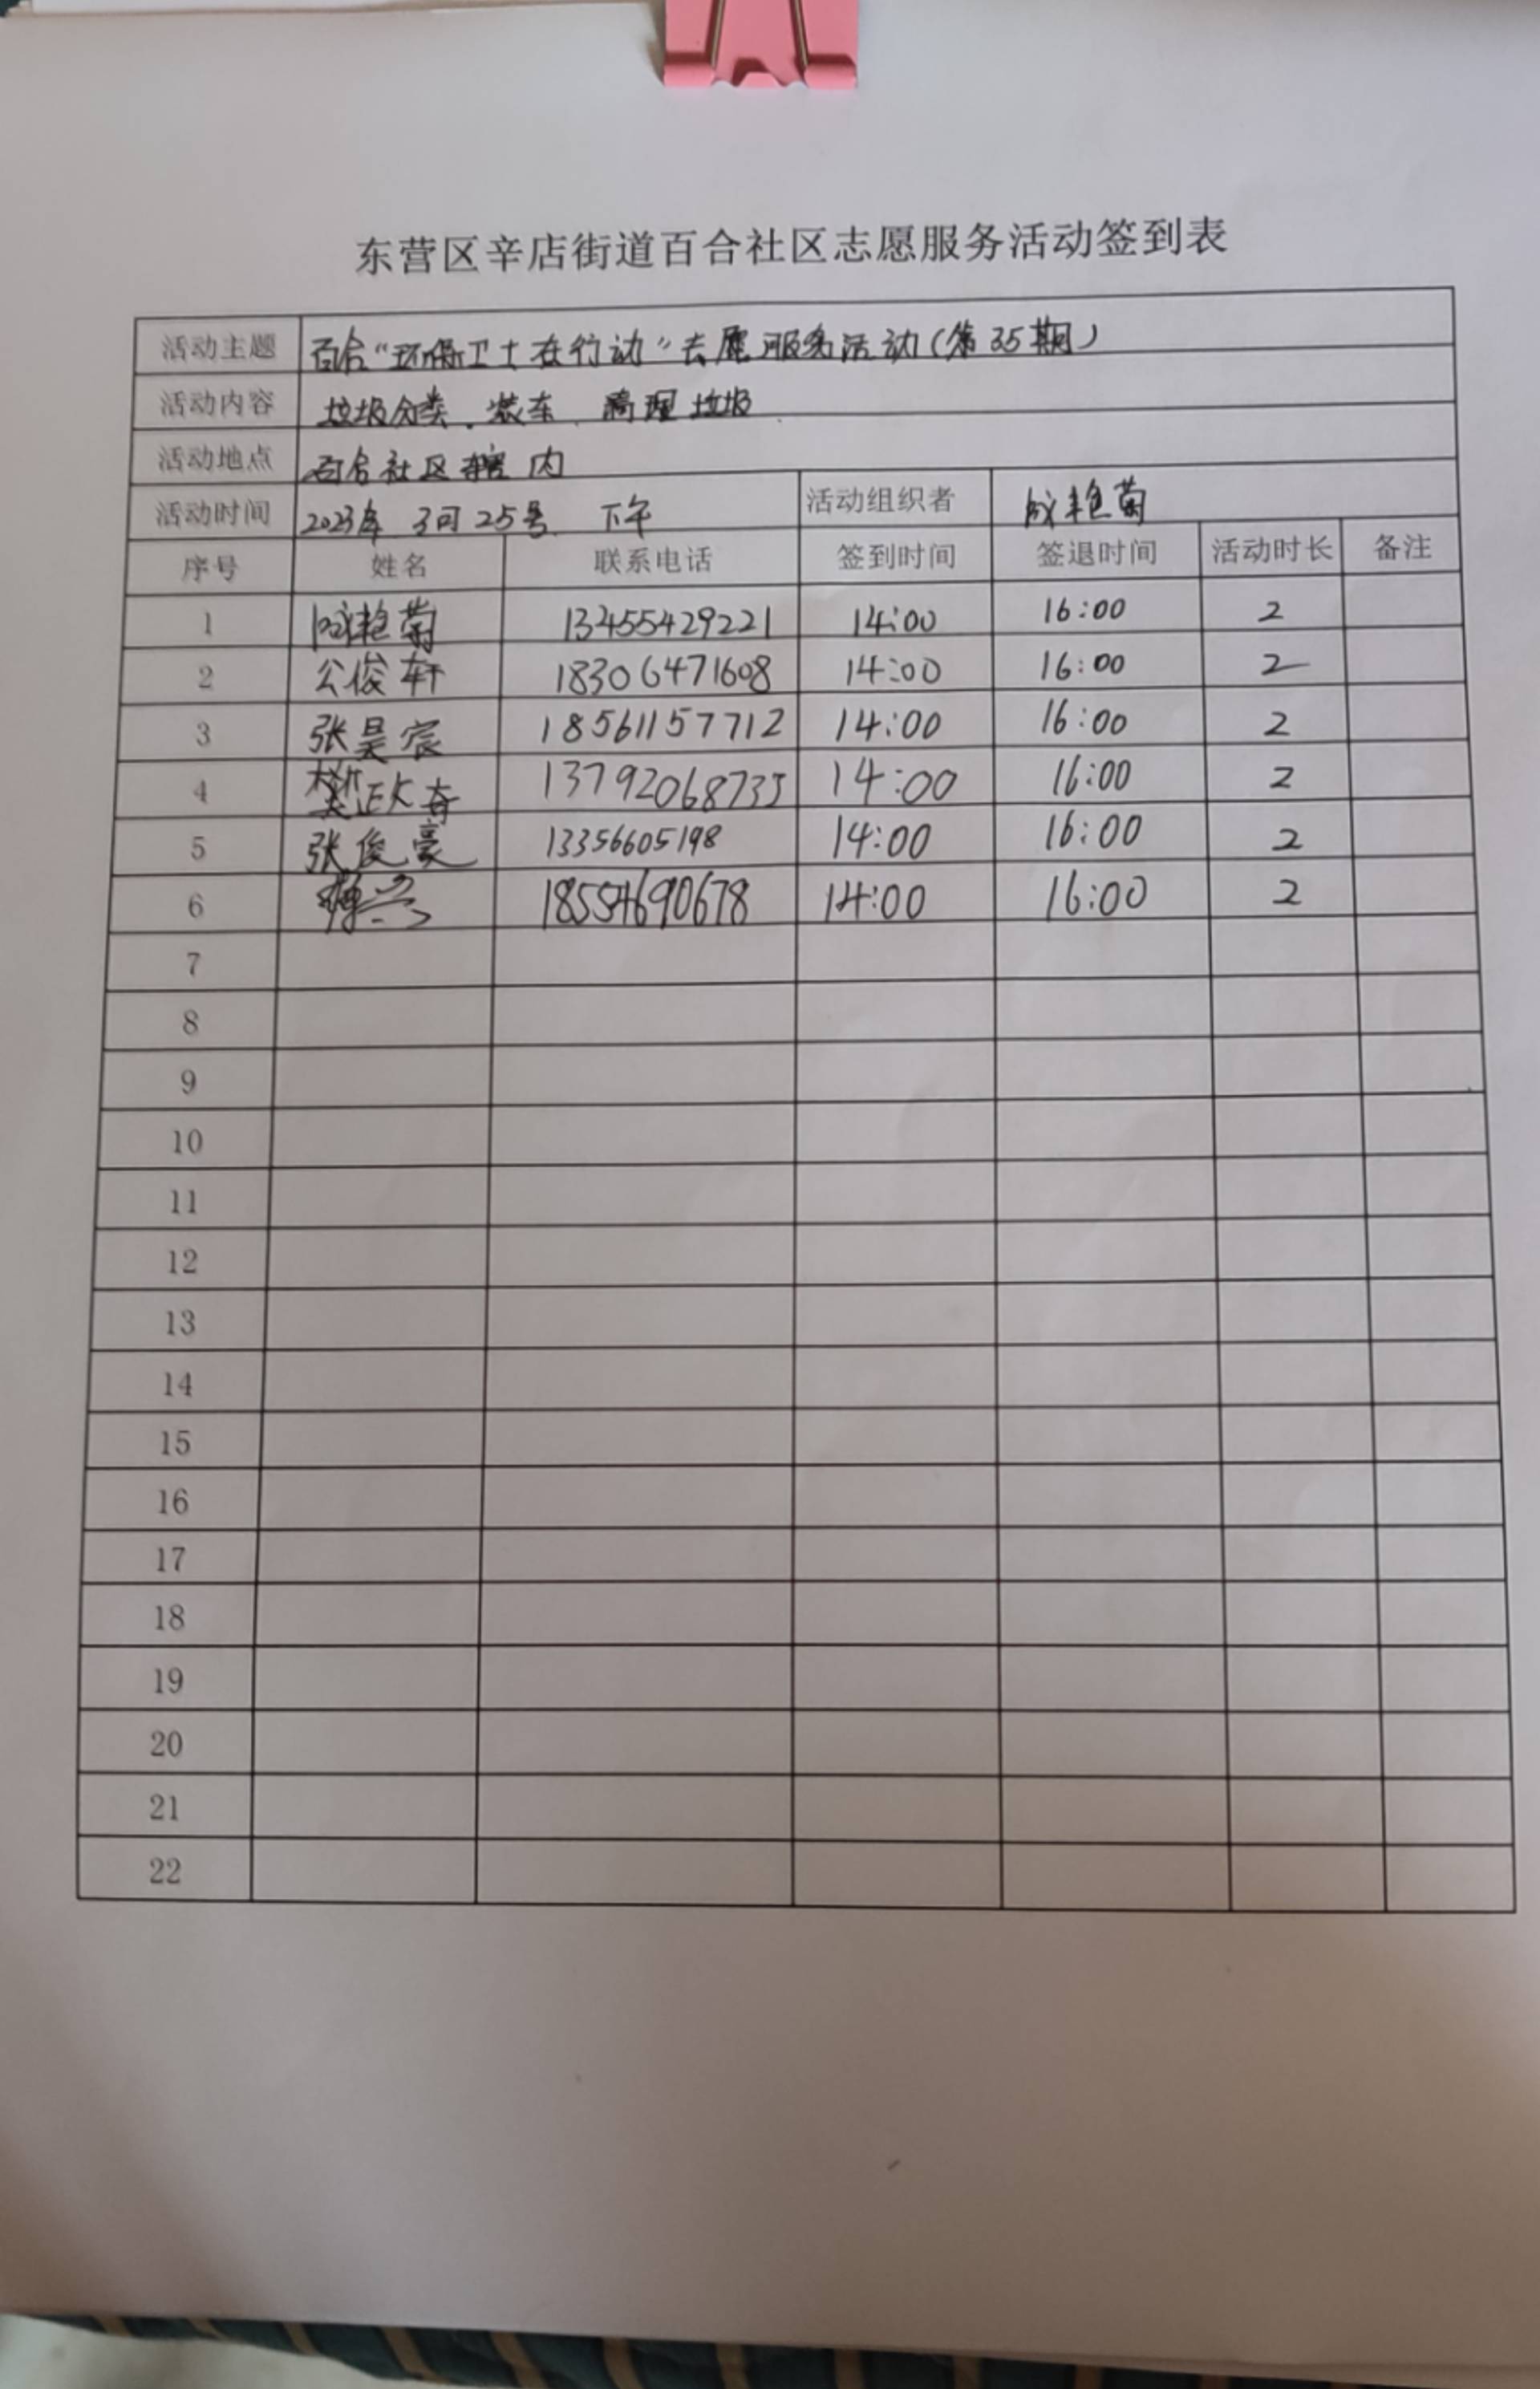 东营区辛店街道百合社区志愿服务活动签到表
活动主题 百合“环保卫士在行动”志愿服务活动(第35期)
活动内容 垃圾分类、装车、清理垃圾
活动地点 百合社区辖内
活动时间 2023年 3月25号 下午 活动组织者 成艳菊
序号 姓名 联系电话 签到时间 签退时间 活动时长 备注
1 成艳菊 13455429221 14:00 16:00 2
2 公俊轩 18306471608 14:00 16:00 2
3 张昊宸 18561157712 14:00 16:00 2
4 13792068735 14:00 16:00 2
5 张俊豪 13356605198 14:00 16:00 2
6 18554690678 14:00 16:00 2
7
8
9
10
11
12
13
14
15
16
17
18
19
20
21
22